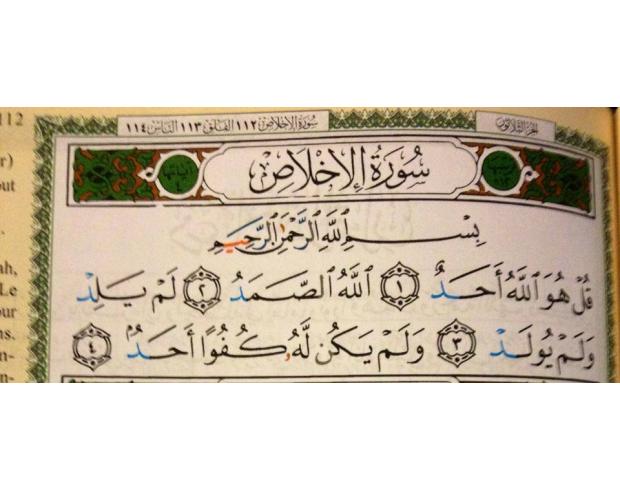 112
سورة الإخلاص ١١٢ الفلق ١١٣ الناس ١١٤
الجزء الثلاثون
سُورَةُ الإِخْلَاصِ
بِسْمِ ٱللَّهِ ٱلرَّحْمَٰنِ ٱلرَّحِيمِ
قُلْ هُوَ ٱللَّهُ أَحَدٌ ١ ٱللَّهُ ٱلصَّمَدُ ٢ لَمْ يَلِدْ
وَلَمْ يُولَدْ ٣ وَلَمْ يَكُن لَّهُۥ كُفُوًا أَحَدٌۢ ٤
r)
out
ah,
Le
our
ns.
n-
n-